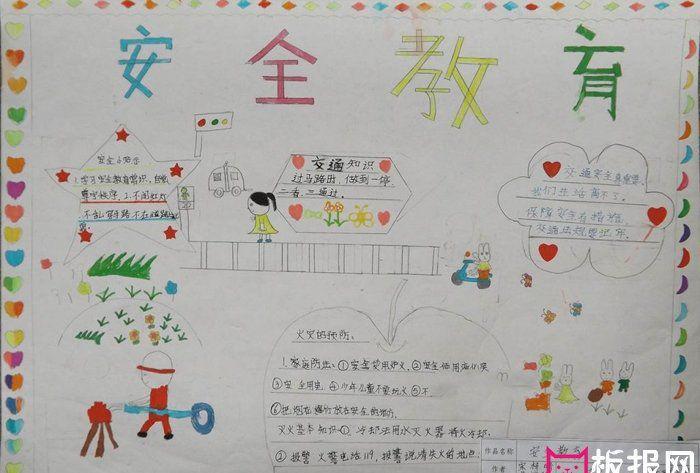 安全教育
安全小知识
1.学习安全教育常识,自觉
遵守秩序.2.不闯红灯
不乱穿马路不在道路
交通知识
过马路时,做到一停
二看,三通过.
交通安全真重要,
我们生活离不了,
保障安全有措施,
交通法规要记牢.
火灾的预防:
1.家庭防火:①安全使用炉火,②安全使用
③安全用电,④少年儿童不要玩火⑤不.
⑥把烟花爆竹放在安全的地方.
灭火基本知识:①冷却法用水灭火器将火冷却.
②报警火警电话119,报警说清失火的地点.
作品名称
安
作者
板报网